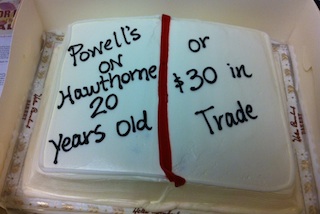 Powell's
on
Hawthorne
20
years old
or
$30 in
Trade